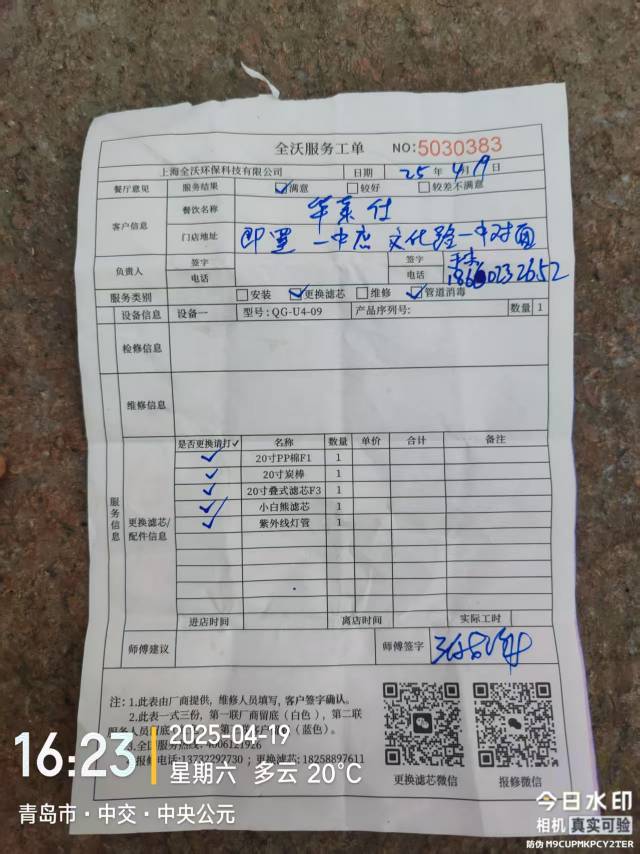 全沃服务工单 NO:5030383
上海全沃环保科技有限公司 日期 25年4月19日
餐厅意见 服务结果 ☑满意 □较好 □较差不满意
客户信息 餐饮名称
门店地址 即墨一中店 文化路一中对面
负责人 签字 签字
电话 电话
服务类别 □安装 ☑更换滤芯 □维修 ☑管道消毒
设备信息 设备一 型号:QG-U4-09 产品序列号: 数量 1
检修信息
维修信息
服务信息 更换滤芯/配件信息
是否更换请打✓ 名称 数量 单价 合计 备注
✓ 20寸PP棉F1 1
✓ 20寸炭棒 1
✓ 20寸叠式滤芯F3 1
✓ 小白熊滤芯 1
✓ 紫外线灯管 1
进店时间 离店时间 实际工时
师傅建议 师傅签字
注:1.此表由厂商提供,维修人员填写,客户签字确认。
2.此表一式三份,第一联厂商留底(白色),第二联
服务人员
(蓝色)。
3.全国服务热线:4006121926
报修电话:13732292730;更换滤芯:18258897611
更换滤芯微信 报修微信
16:23 2025-04-19
星期六 多云 20℃
青岛市·中交·中央公元
今日水印
相机 真实可验
防伪 M9CUPMKPCY2TER